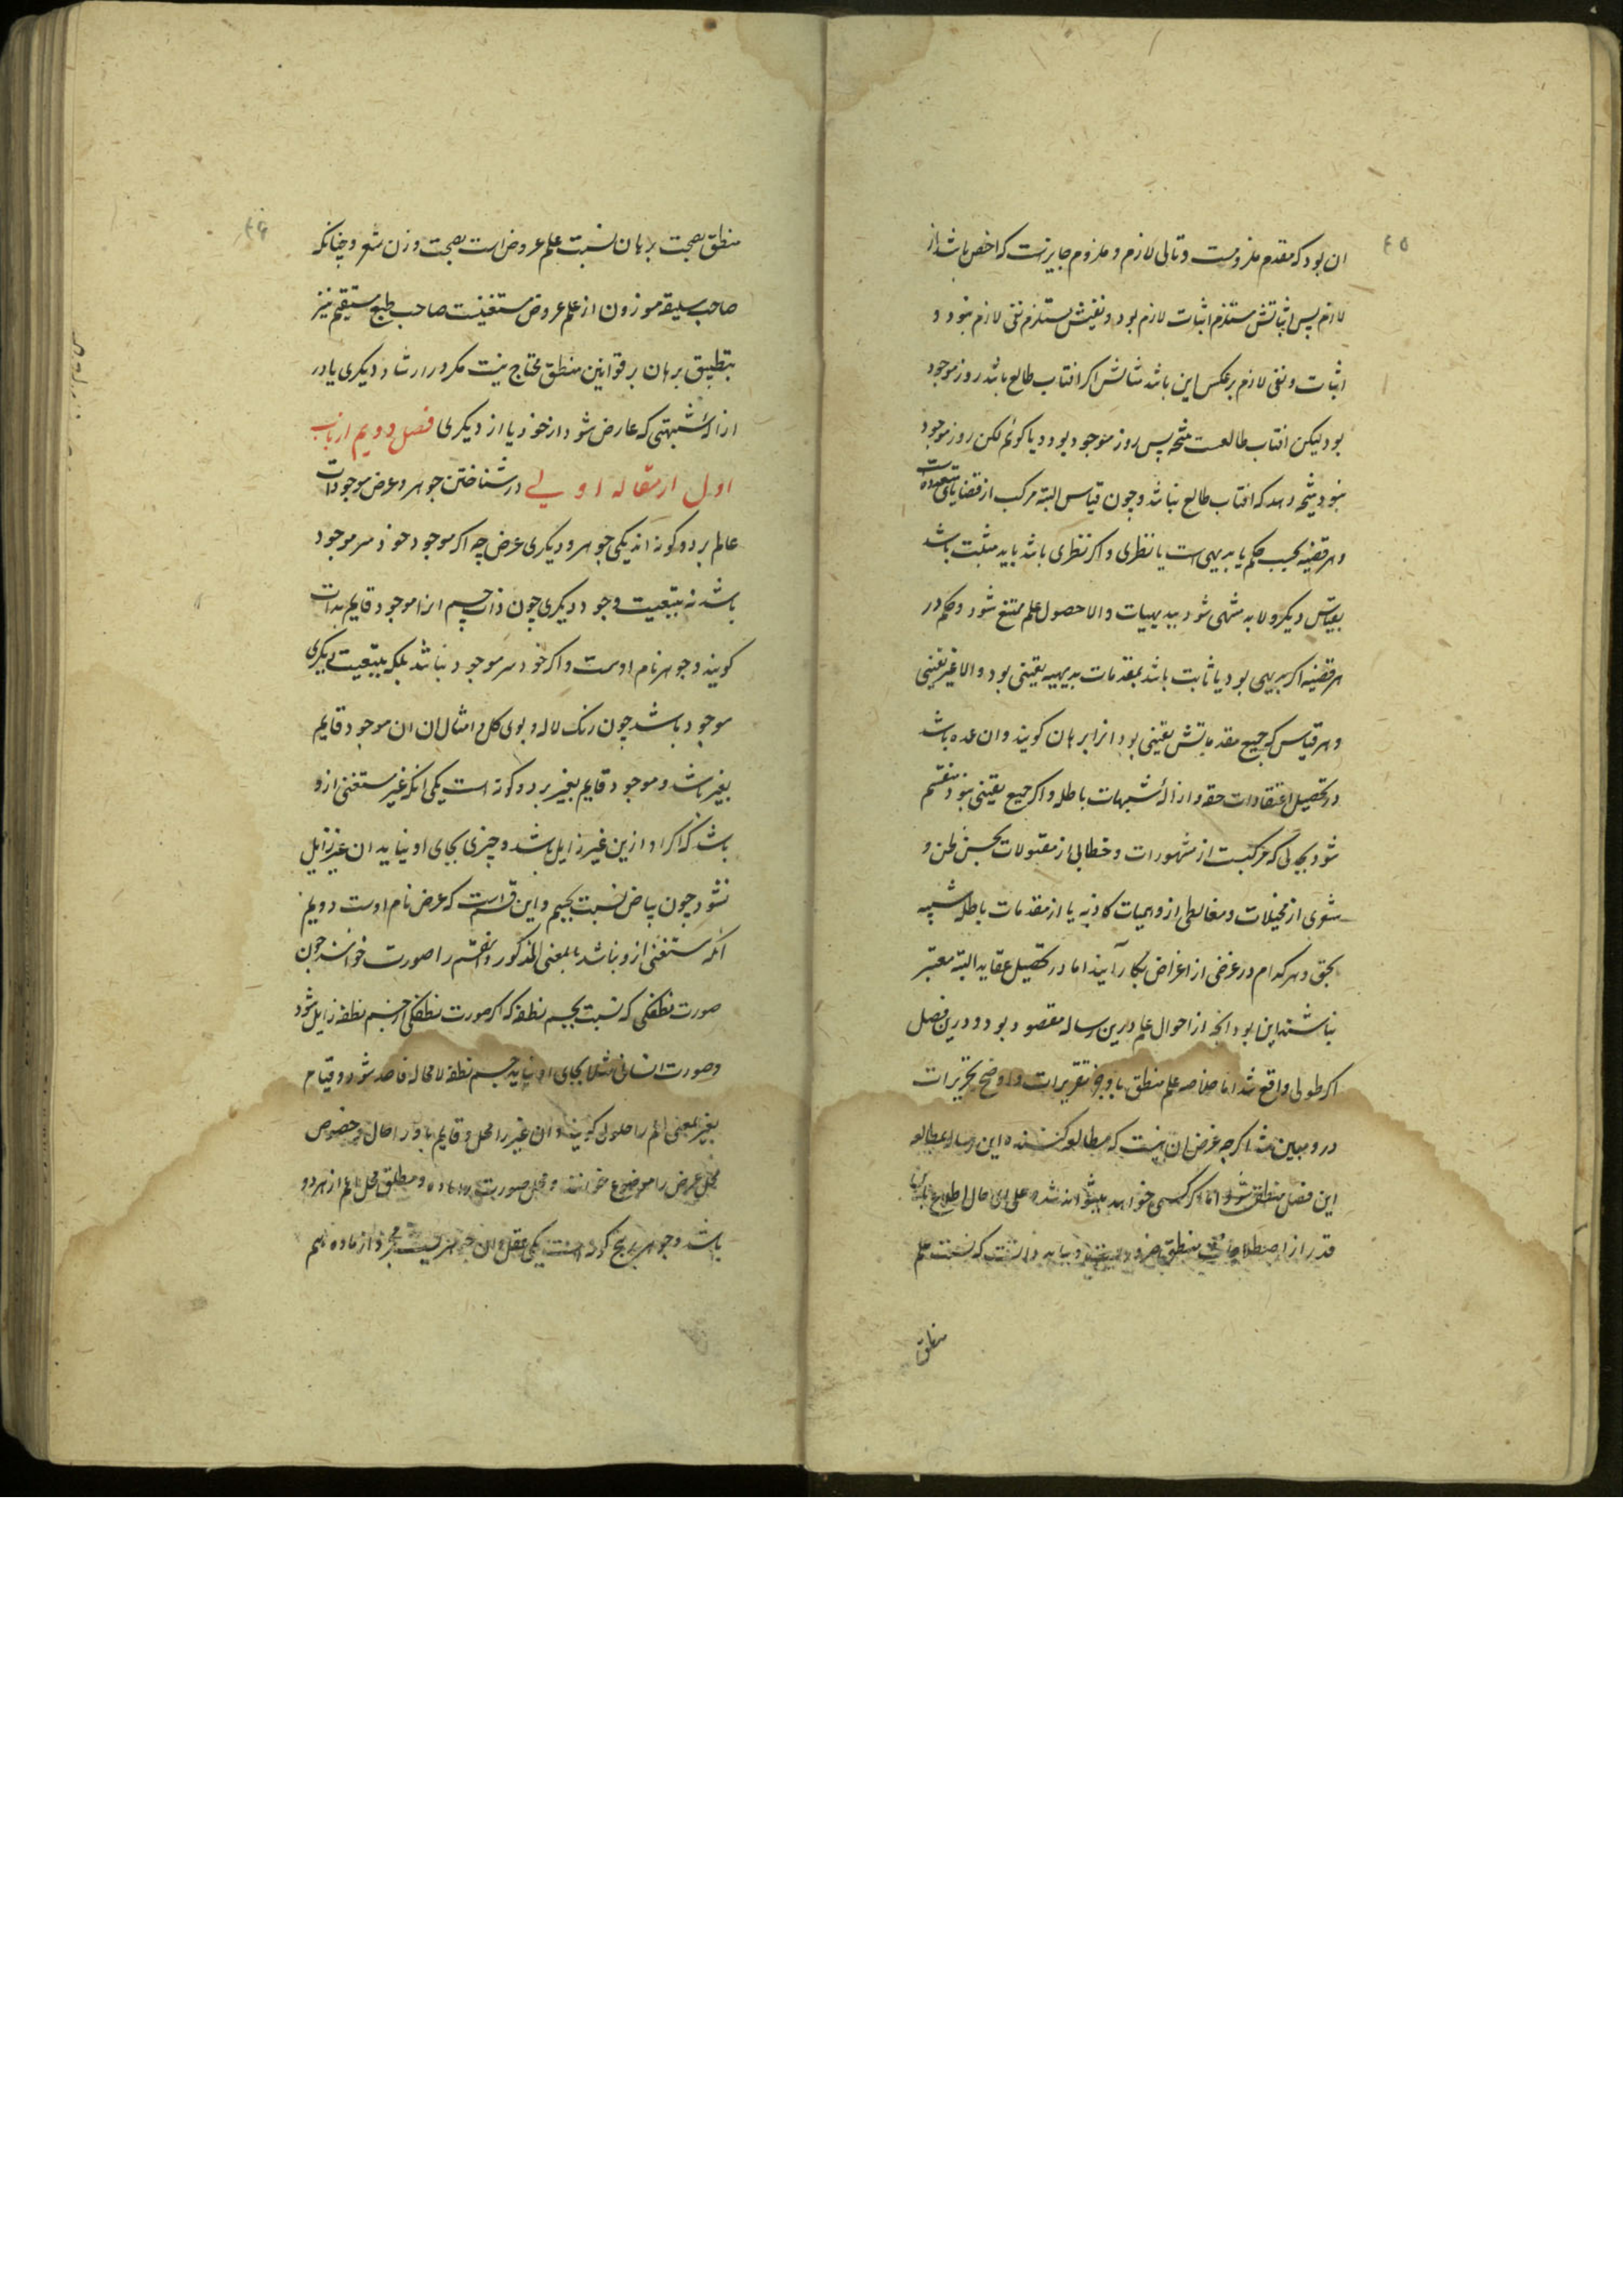 ۴۵
ان بود که مقدم ملزومست و تالی لازم و ملزوم جایزست که اخص باشد از
لازم پس اثباتش مستلزم اثبات لازم بود و نفیش مستلزم نفی لازم نبود و
اثبات و نفی لازم برعکس این باشد مثالش اگر افتاب طالع باشد روز موجود
بود لیکن افتاب طالعست نتیجه پس روز موجود بود و یا کوئم لکن روز موجود
نبود نتیجه دهد که افتاب طالع نباشد و چون قیاس البته مرکب از قضایای متعدده است
و هر قضیه بحسب حکم یا بدیهی است یا نظری و اکر نظری باشد باید مثبت باشد
بقیاس دیکر و لابد منتهی شود ببدیهیات و الا حصول علم ممتنع شود و حکم در
هر قضیه اکر بدیهی بود یا ثابت باشد بمقدمات بدیهیه یقینی بود و الا غیر یقینی
و هر قیاس که جمیع مقدماتش یقینی بود انرا برهان کویند و ان عمده باشد
در تحصیل اعتقادات حقه و ازالهٔ شبهات باطله و اکر جمیع یقینی نبود منقسم
شود بجدلی که مرکبست از مشهورات و خطابی از مقبولات بحسن ظن و
شعری از مخیلات و مغالطی از وهمیات کاذبه یا از مقدمات باطله شبیه
بحق و هر کدام در غرضی از اغراض بکار آیند اما در تحصیل عقاید البته معتبر
نباشند این بود انچه از احوال علم درین رساله مقصود بود و درین فصل
اکر طولی واقع شد اما خلاصه علم منطق باوجز تقریرات و اوضح تحریرات
درو مبین شد اکرچه غرض ان نیست که مطالعه کننده این رساله بمطالعه
این فصل منطقی شود اما اکر کسی خواهد پیشوا نشده علی ای حال اطلاع باین
قدر از اصطلاحات منطق ضرور است و بباید دانست که نسبت علم
منطق
۴۶
منطق بصحت برهان نسبت علم عروض است بصحت وزن شعر و چنانکه
صاحب سلیقه موزون از علم عروض مستغنیست صاحب طبع مستقیم نیز
بتطبیق برهان بر قوانین منطق محتاج نیست مکر در ارشاد دیکری یا در
ازالهٔ شبهتی که عارض شود از خود یا از دیکری فصل دویم از باب
اول از مقاله اولی در شناختن جوهر و عرض موجودات
عالم بر دو کونه اند یکی جوهر و دیکری عرض چه اکر موجود خود سر موجود
باشد نه بتبعیت وجود دیکری چون ذات جسم انرا موجود قایم بذات
کویند و جوهر نام اوست و اکر خود سر موجود نباشد بلکه بتبعیت دیکری
موجود باشد چون رنک لاله و بوی کل و امثال ان ان موجود قایم
بغیر باشد و موجود قایم بغیر بر دو کونه است یکی انکه غیر مستغنی ازو
باشد که اکر او ازین غیر زایل باشد و چیزی بجای او نیاید ان غیر زایل
نشود چون بیاض نسبت بجسم و این قسم است که عرض نام اوست دویم
انکه مستغنی ازو نباشد بالمعنی المذکور و این قسم را صورت خوانند چون
صورت نطفکی که نسبت بجسم نطفه که اکر صورت نطفکی از جسم نطفه زایل شود
و صورت انسانی مثلا بجای او نیاید جسم نطفه لامحاله فاسد شود و قیام
بغیر بمعنی اعم را حلول کویند و ان غیر را محل و قایم باو را حال و خصوص
محل عرض را موضوع خوانند و محل صورت را ماده و مطلق محل اعم از هر دو
باشد و جوهر بر پنج کونه است یکی عقل و ان جوهریست مجرد از ماده هم